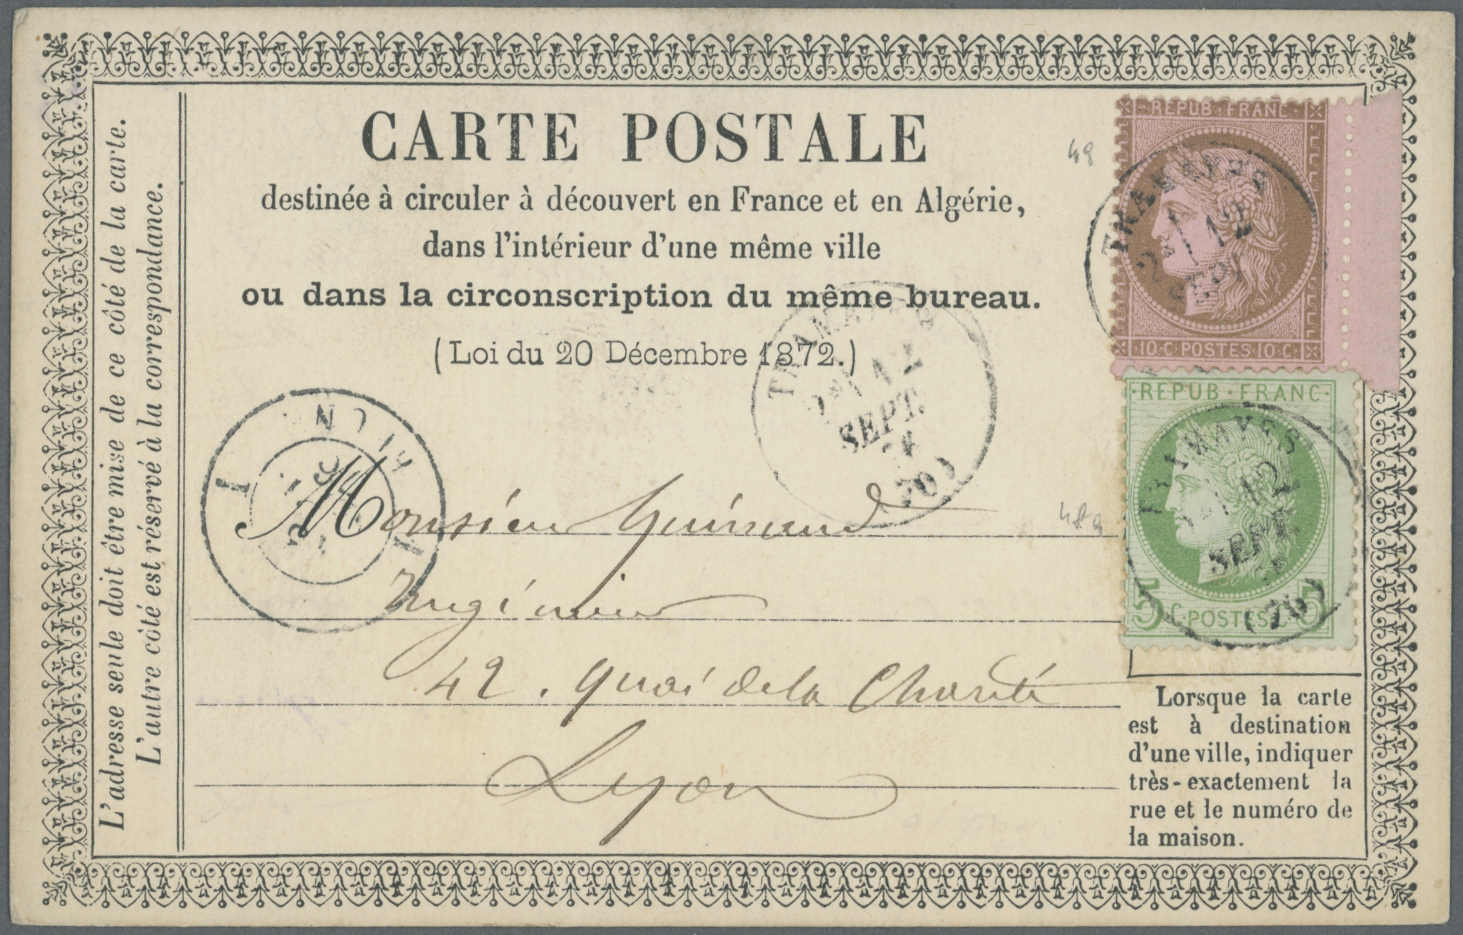 CARTE POSTALE
destinée à circuler à découvert en France et en Algérie,
dans l'intérieur d'une même ville
ou dans la circonscription du même bureau.
(Loi du 20 Décembre 1872.)
L'adresse seule doit être mise de ce côté de la carte.
L'autre côté est réservé à la correspondance.
49
REPUB·FRANC·
TRAMAYES
12
SEPT
10·C·POSTES·10·C·
TRAMAYES
12
SEPT.
(70)
REPUB·FRANC·
TRAMAYES
12
SEPT.
(70)
5 C·POSTES 5
48a
Monsieur
Ingénieur
42. Quai de la Charité
Lyon
Lorsque la carte
est à destination
d'une ville, indiquer
très-exactement la
rue et le numéro de
la maison.